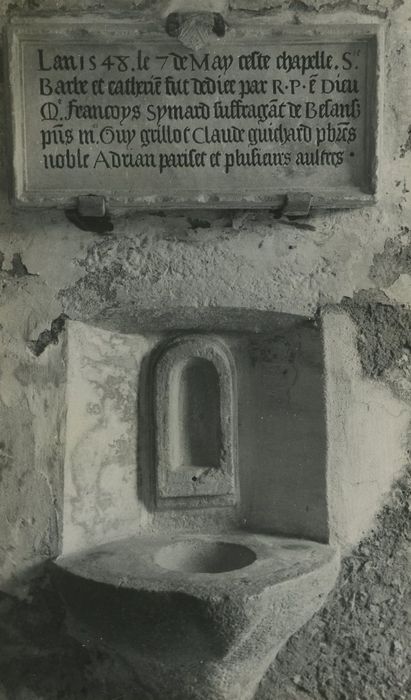 Lan 1548. le 7 de May ceste chapelle. S.te
Barbe et catheri͂e fut dediee par R·P· e͂ Dieu
M.e Francoys Symard suffraga͂t de Besans͂
pn͂s m. Guy grillot Claude guichard pbr͂es
noble Adrian pariset et plusieurs aultres ·